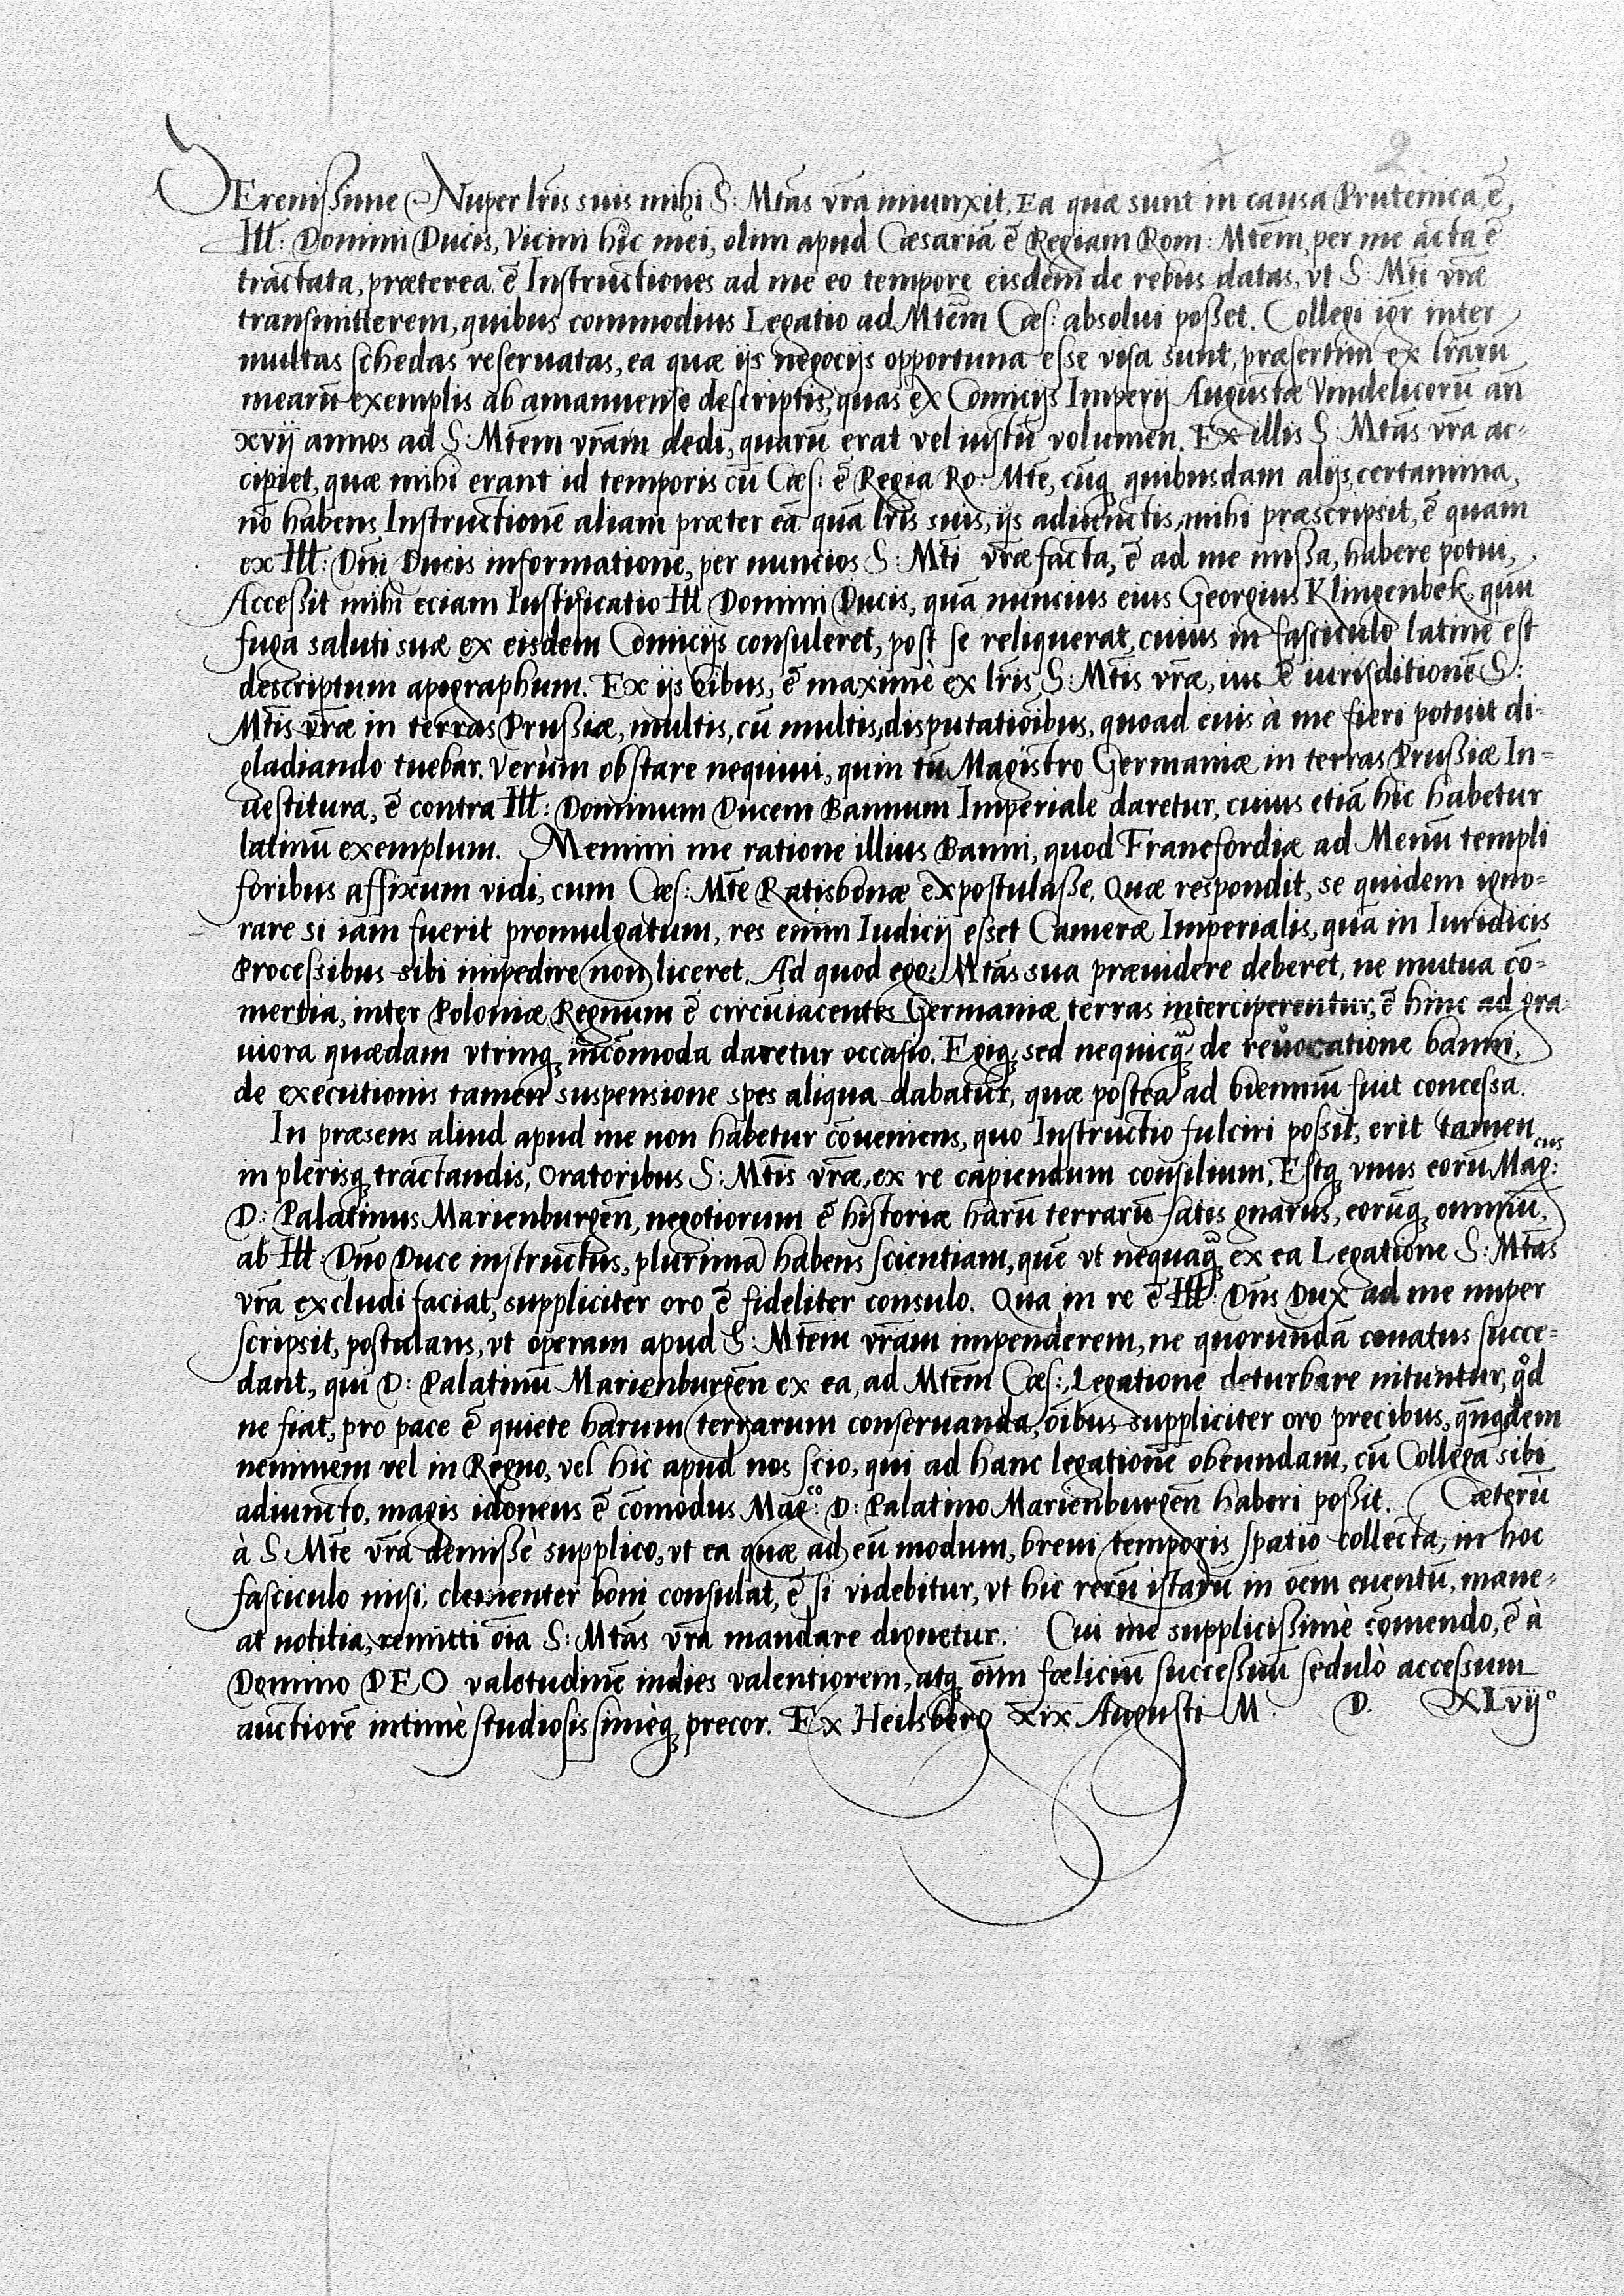 2
SErenissime Nuper lr̃is suis mihi S: Mtãs vr̃a iniunxit, Ea quæ sunt in causa Prutenica, ē
Ill: Domini Ducis, Vicini hic mei, olim apud Cæsariā ē Regiam Rom: Mtẽm, per me acta ē
tractata, præterea ē Instructiones ad me eo tempore eisdem de rebus datas, vt S: Mti vr̃æ
transmitterem, quibus commodius Legatio ad Mtẽm Cæs: absolui posset. Collegi igr̃ inter
multas schedas reseruatas, ea quæ ijs negocijs opportuna esse visa sunt, præsertim ex lr̃arū
mearū exemplis ab amanuense descriptis, quas ex Comicijs Imperij Augustæ Vindelicorū an̄
xvij annos ad S: Mtẽm vr̃am dedi, quarū erat vel iustū volumen. Ex illis S: Mtãs vr̃a ac=
cipiet, quæ mihi erant id temporis cū Cæs: ē Regia Ro: Mte, cūq; quibusdam alijs, certamina,
nō habens Instructionē aliam præter eā quā lr̃is suis, ijs adiunctis, mihi præscripsit, ē quam
ex Ill: Dn̄i Ducis informatione, per nuncios S: Mti vr̃æ facta, ē ad me missa, habere potui,
Accessit mihi eciam Iustificatio Ill Domini Ducis, quā nuncius eius Georgius Klingenbek, qūū
fuga saluti suæ ex eisdem Comicijs consuleret, post se reliquerat, cuius in fasciculo latinē est
descriptum apographum. Ex ijs oībus, ē maximè ex lr̃is S: Mtis vr̃æ, ius ē iurisditionē S:
Mtis vr̃æ in terras Prussiæ, multis, cū multis, disputatiōibus, quoad eius à me fieri potuit di=
gladiando tuebar. Verùm obstare nequiui, quin tū Magistro Germaniæ in terras Prussiæ In=
uestitura, ē contra Ill: Dominum Ducem Bannum Imperiale daretur, cuius etiā hic habetur
latinū exemplum. Memini me ratione illius Banni, quod Francfordiæ ad Menū templi
foribus affixum vidi, cum Cæs: Mte Ratisbonæ expostulasse. Quæ respondit, se quidem igno=
rare si iam fuerit promulgatum, res enim Iudicij esset Cameræ Imperialis, quā in Iuridicis
Processibus sibi impedire non liceret. Ad quod ego: Mtãs sua præuidere deberet, ne mutua cō=
mertia, inter Poloniæ Regnum ē circūiacentes Germaniæ terras interciperentur, ē hinc ad gra
uiora quædam vtrinq; incōmoda daretur occasio. Egiq; sed nequicq̃ de reuocatione banni,
de executionis tamen suspensione spes aliqua dabatur, quæ postea ad biennium fuit concessa.
In præsens aliud apud me non habetur cōueniens, quo Instructio fulciri possit, erit tamen
in plerisq; tractandis, Oratoribus S: Mtis vr̃æ, ex re capiendum consilium, Estq; vnus eorū Mag:cus
D: Palatinus Marienburgen̄, negotiorum ē historiæ harū terrarū satis gnarus, eorūq; omniū,
ab Ill: Dn̄o Duce instructus, plurimā habens scientiam, quē vt nequaq̃ ex ea Legatione S: Mtãs
vr̃a excludi faciat, suppliciter oro ē fideliter consulo. Qua in re ē Ill: Dn̄s Dux ad me nuper
scripsit, postulans, vt operam apud S: Mtẽm vr̃am impenderem, ne quorundā conatus succe=
dant, qui D: Palatinū Marienburgen̄ ex ea, ad Mtẽm Cæs:, Legatione deturbare nituntur, qd
ne fiat, pro pace ē quiete harum terrarum conseruanda, oībus suppliciter oro precibus, qn̄qdem
neminem vel in Regno, vel hic apud nos scio, qui ad hanc legationē obeundam, cū Collega sibi
adiuncto, magis idoneus ē cōmodus Mag:co D: Palatino Marienburgen̄ haberi possit. Cæterū
à S: Mte vr̃a demissè supplico, vt ea quæ ad eū modum, breui temporis spatio collecta, in hoc
fasciculo misi, clementer boni consulat, ē si videbitur, vt hic rerū istarū in oēm euentū, mane=
at notitia, remitti oīa S: Mtãs vr̃a mandare dignetur. Cui me supplicissimè cōmendo, ē à
Domino DEO valetudinē indies valentiorem, atq; oīm fœliciū successuū sedulò accessum
auctiorē intimè studiosissimèq; precor. Ex Heilsberg xix Augusti M. D. XLvij°